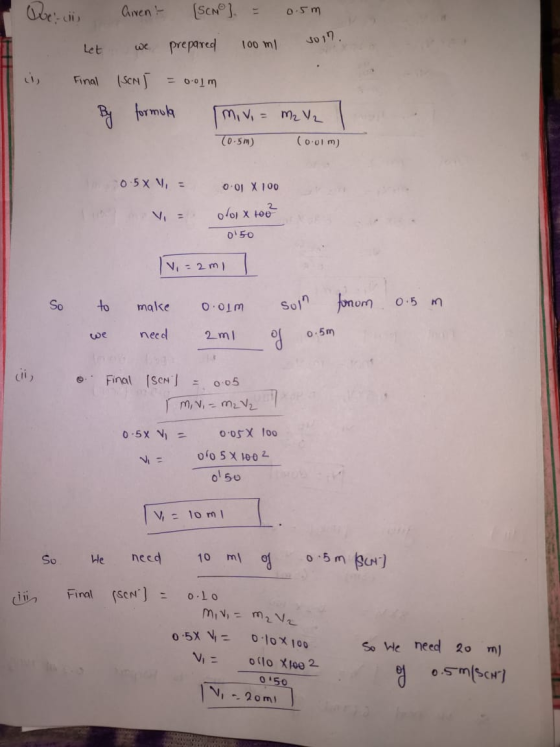 Que:- (ii), Given:- [SCN⊖]. = 0.5m
Let we prepared 100 ml solⁿ.
(i), Final [SCN]⁻ = 0.01m
By formula M₁V₁ = M₂V₂
(0.5m) (0.01m)
0.5 x V₁ = 0.01 x 100
V₁ = 0.01 x 100 2
0.50
V₁ = 2ml
So to make 0.01m solⁿ 0.5 m
we need 2ml of 0.5m
(ii), Final [SCN⁻] = 0.05
M₁V₁ = M₂V₂
0.5x V₁ = 0.05 x 100
V₁ = 0.05 x 100 2
0.50
V₁ = 10 ml .
So We need 10 ml of 0.5m [SCN⁻]
(iii), Final [SCN⁻] = 0.10
M₁V₁ = M₂V₂
0.5x V₁ = 0.10x100
V₁ = 0.10 x100 2
0.50
V₁ = 20ml
So We need 20 ml
of 0.5m[SCN⁻]